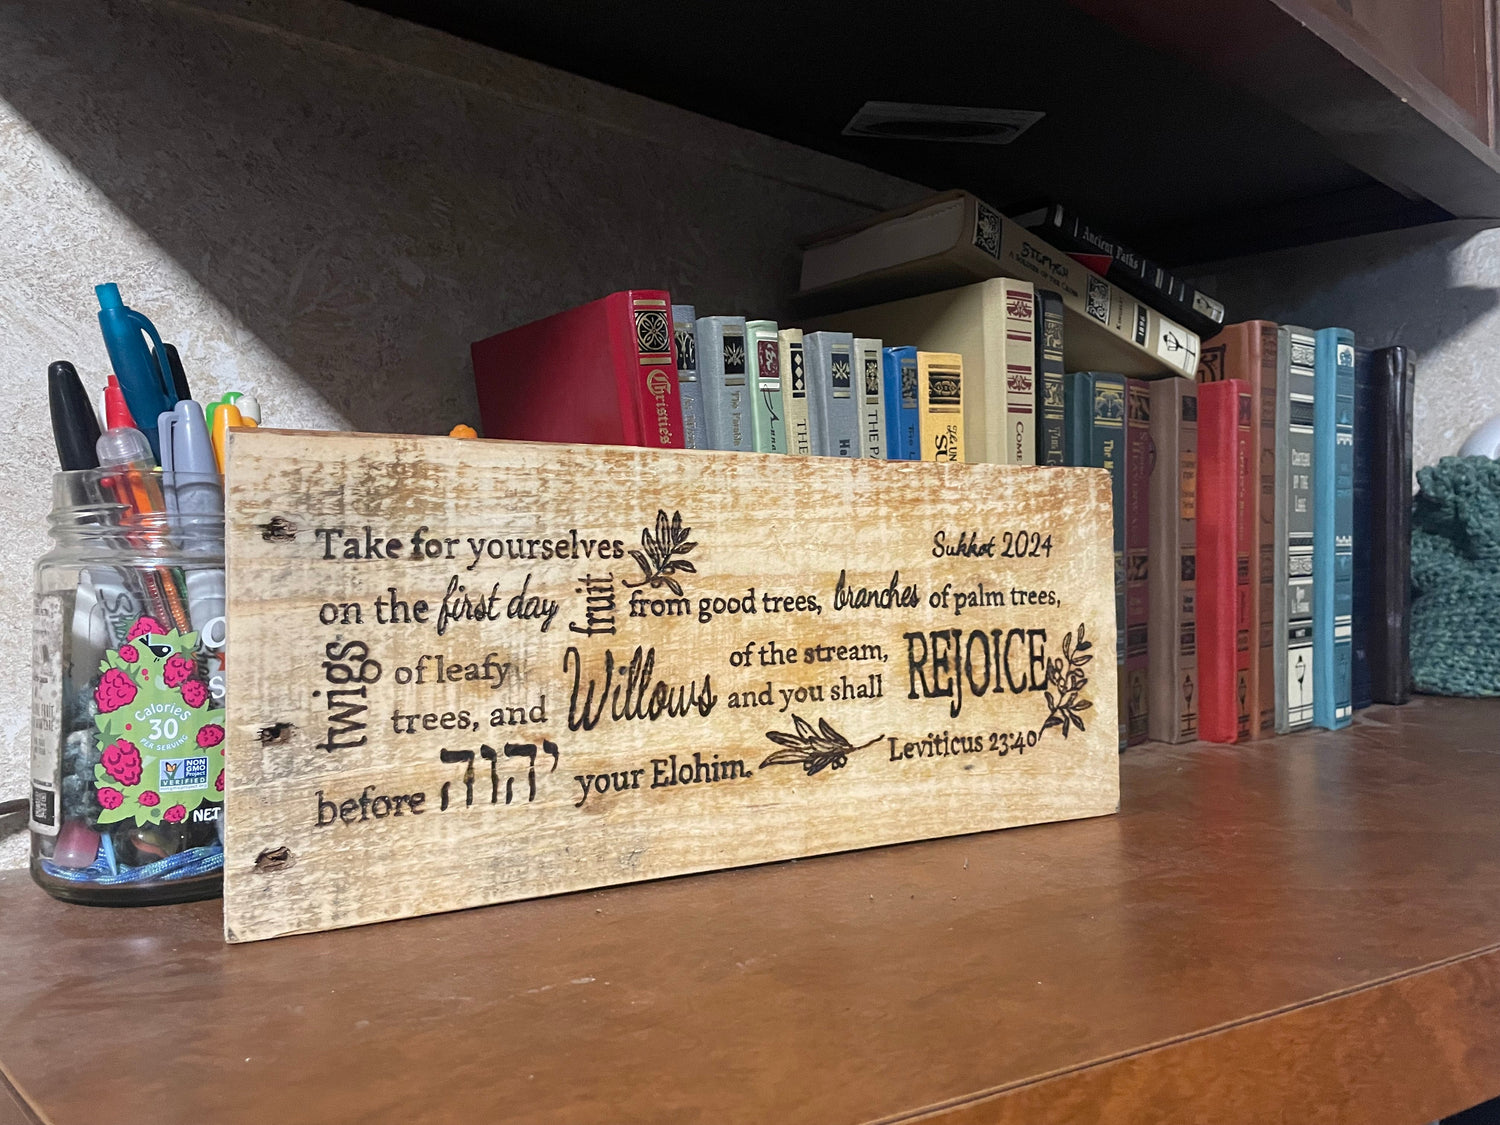 Take for yourselves
Sukkot 2024
on the first day fruit from good trees, branches of palm trees,
twigs of leafy trees, and Willows of the stream, and you shall REJOICE
before יהוה your Elohim.
Leviticus 23:40
Calories
30
PER SERVING
NON
GMO
Project
VERIFIED
NET
Christie's
The Parable
Anna
THE
THE P
COME
STEPHEN
A SOLDIER OF THE CROSS
Ancient Paths